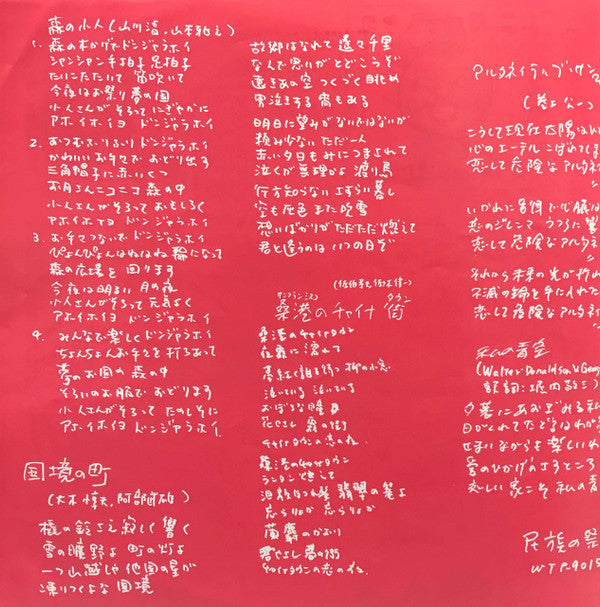 森の小人(山川清,山本雅之)
1. 森の木かげでドンジャラホイ
シャンシャン手拍子 足拍子
たいこたたいて 笛吹いて
今夜はお祭り夢の国
小人さんがそろって にぎやかに
アホイホイヨ ドンジャラホイ
2. おつむふりふり ドンジャラホイ
かわいいお手々で おどり出す
三角帽子に 赤いくつ
お月さんニコニコ 森の中
小人さんがそろって おもしろく
アホイホイヨ ドンジャラホイ
3. お手々つないで ドンジャラホイ
ぴょんぴょんはねはね 輪になって
森の広場を 回ります
今夜は明るい 月の夜
小人さんがそろって 元気よく
アホイホイヨ ドンジャラホイ
4. みんなで楽しく ドンジャラホイ
ちょんちょんお手々を 打ちあって
夢のお国の 森の中
そろいのお服で おどります
小人さんがそろって たのしそに
アホイホイヨ ドンジャラホイ
国境の町
(大木惇夫,阿部武雄)
橇の鈴さえ寂しく響く
雪の曠野よ 町の灯よ
一つ山越しゃ 他国の星が
凍りつくよな 国境
故郷はなれて 遥々千里
なんで思いが とどこうぞ
遠きあの空 つくづく眺め
男泣きする 宵もある
明日に望みが ないではないが
頼み少ない ただ一人
赤い夕日も 身につまされて
泣くが無理かよ 渡り鳥
行方知らない さすらい暮し
空も灰色 また吹雪
想いばかりが ただただ燃えて
君と逢うのは いつの日ぞ
(佐伯孝夫,佐々木俊一)
サンフランシスコ タウン
桑港のチャイナ街
桑港のチャイナタウン
夜霧に濡れて
夢紅く誰を待つ 柳の小窓
泣いている 泣いている
おぼろな瞳よ
花やさし 霧の街
チャイナタウンの恋の夜
桑港のチャイナタウン
ランタンもして
涙顔 翡翠の籠よ
忘らりょか 忘らりょか
蘭麝のかおり
君やさし 夢の街
チャイナタウンの恋の夜
アルタネイティブ・サン
(巻上公一)
こうして現在 太陽は
心のエーテル こぼれて
恋して危険な アルタネ
恋して危険な アルタネ
それから未来の光が
不滅の
恋して危険な アルタネ
私の青空
(Walter Donaldson & Geor
訳詞:堀内敬三)
夕暮にあおぎみる 私
日がくれて たどるは わが
せまいながらも 楽しいわ
愛のひかげの さすところ
恋しい家こそ 私の青
民族の祭
WTP-9015